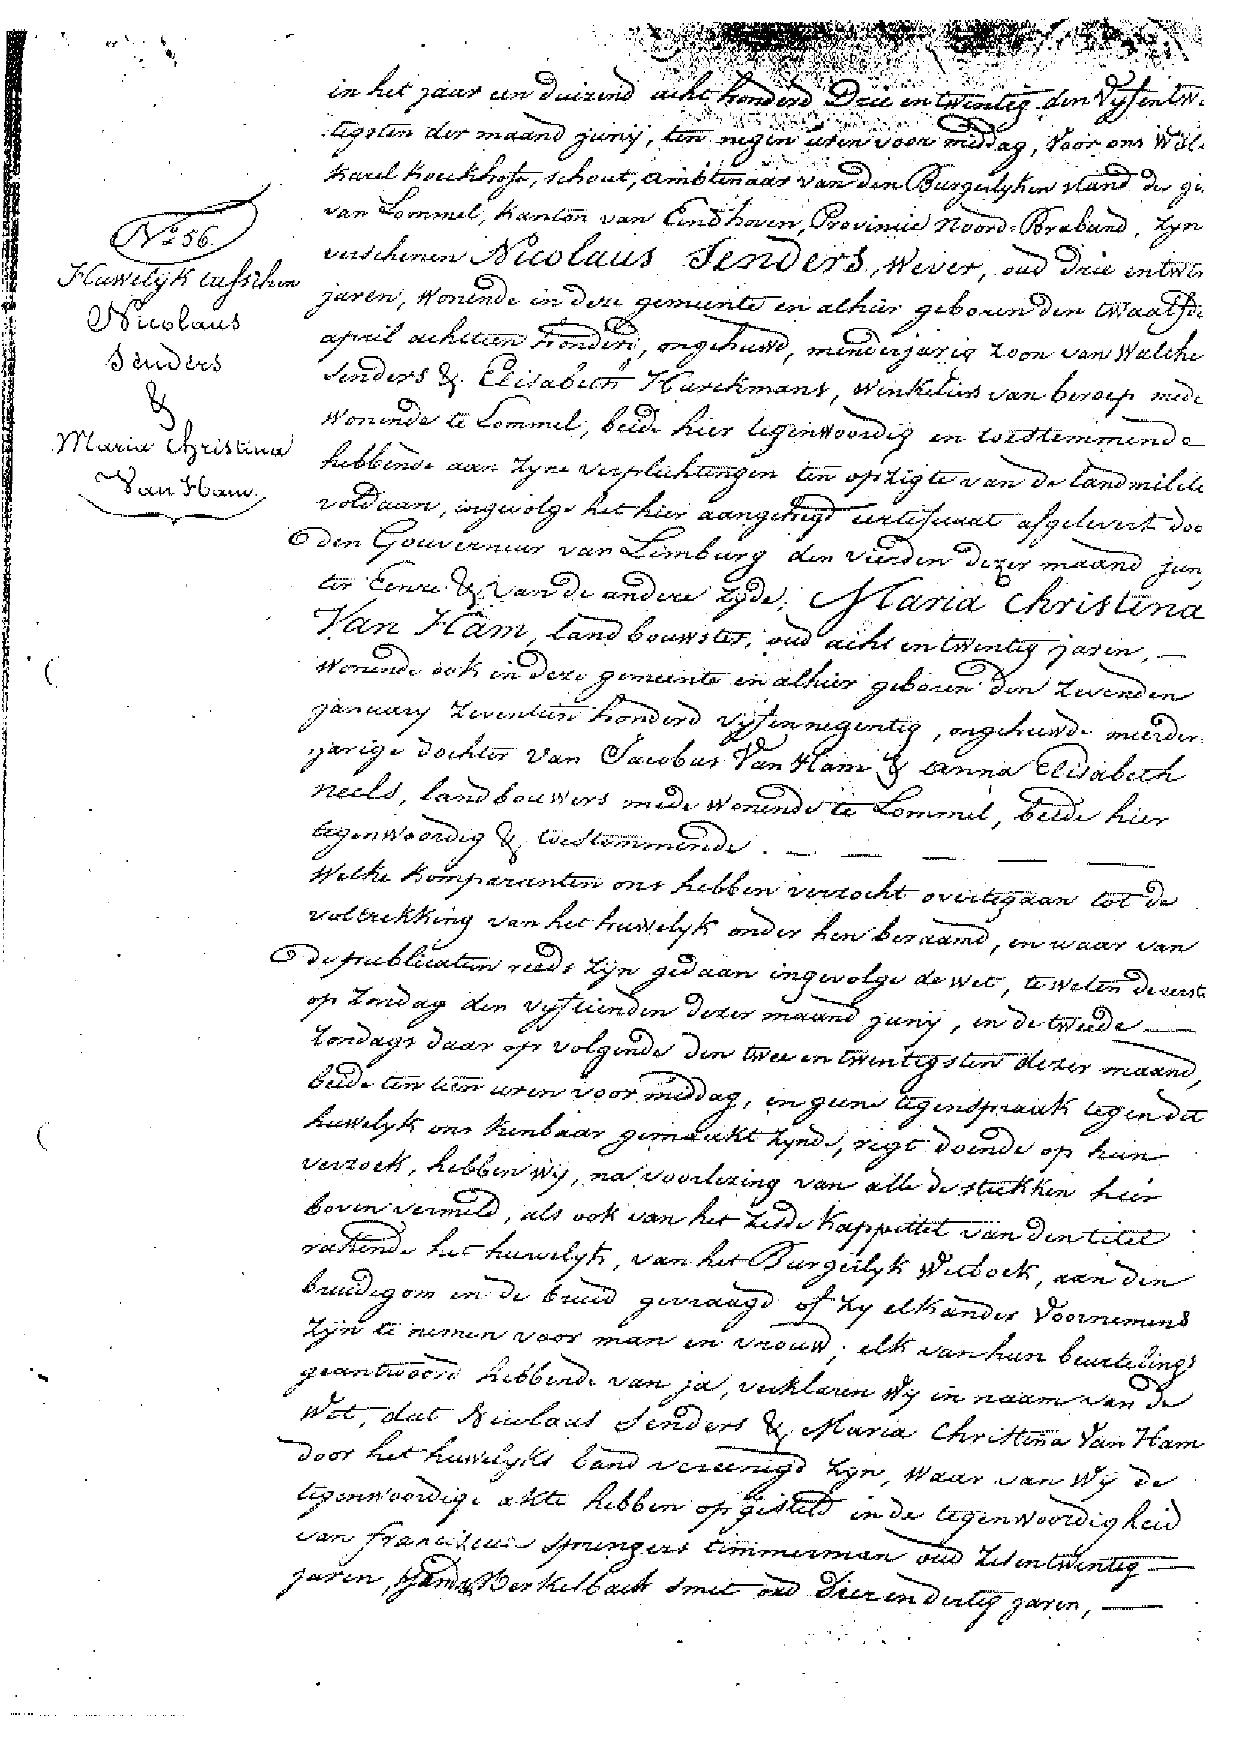 in het jaar een duizend acht honderd Drie en twintig den Vyfentw
tegsten der maand juny, ten negen uren voor middag, Voor ons Wil
Karel Houkhoft, schout, ambtenaar van den Burgerlyken stand der ge
van Lommel, Kanton van Eindhoven, Provincie Noord-Braband, zyn
verschenen Nicolaus Senders, Wever, oud drie entwi
jaren, Wonende in deze gemeente en alhier geboren den twaalfde
april achtien honderd, ongehuwd, minderjarig zoon van Walthe
Senders & Elisabeth Harckmans, Winkeliers van beroep mede
Wonende te Lommel, beide hier tegenwoordig en toestemmende
hebbende aan zyne verplichtingen ten opzigte van de Landmilitie
voldaan, ingevolge het hier aangehegt certificaat afgelevert doo
den Gouverneur van Limburg den vierden dezer maand jun
ter Eenre & van de andere zyde; Maria Christina
Van Ham, Landbouwster, oud acht en twintig jaren,
Wonende ook in deze gemeente en alhier geboren den zevenden
january zeventien honderd vyfennegentig, ongehuwde meerder
jarige dochter van Jacobus Van Ham & Anna Elisabeth
neels, Landbouwers mede Wonende te Lommel, beide hier
tegenwoordig & toestemmende.
Nº 56.
Huwelyk tusschen
Nicolaus
Senders
&
Maria Christina
Van Ham.
Welke komparanten ons hebben verzocht overtegaan tot de
voltrekking van het huwelyk onder hen beraamd, en waar van
de publicatien reeds zyn gedaan ingevolge de Wet, te weten de eerst
op zondag den vyftienden dezer maand juny, en de tweede
zondags daar op volgende den twee en twintigsten dezer maand,
beide ten tien uren voor middag, en geene tegenspraak tegen dit
huwelyk ons kenbaar gemaakt zynde, regt doende op hun
verzoek, hebben Wy, na voorlezing van alle de stukken hier
boven vermeld, als ook van het zesde Kappittel van den titel
rakende het huwelyk, van het Burgerlyk Wetboek, aan den
bruidegom en de bruid gevraagd of zy elkander Voornemens
zyn te nemen voor man en vrouw; elk van hun beurtelings
geantwoord hebbende van ja, verklaren Wy in naam van de
Wet, dat Nicolaus Senders & Maria Christina Van Ham
door het huwelyks band vereenigd zyn, Waar van Wy de
tegenwoordige akte hebben opgesteld in de tegenwoordigheid
van franciscus sprengers timmerman oud zesentwintig
jaren, Berkelbach smit oud Drie en dertig jaren,